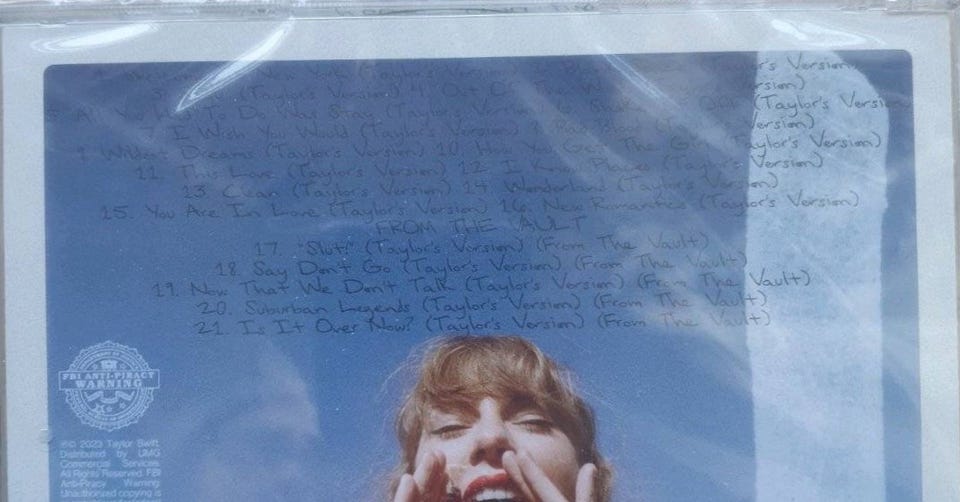 New York (Taylor's Version)  r's Version)
(Taylor's Version) 4. Out Of The Wo  rsion)
5. All You Had To Do Was Stay (Taylor's Version)  Off (Taylor's Version)
7. I Wish You Would (Taylor's Version) 8. Bad Blood (Taylor's Version)
9. Wildest Dreams (Taylor's Version) 10. How You Get The Girl (Taylor's Version)
11. This Love (Taylor's Version) 12. I Know Places (Taylor's Version)
13. Clean (Taylor's Version) 14. Wonderland (Taylor's Version)
15. You Are In Love (Taylor's Version) 16. New Romantics (Taylor's Version)
FROM THE VAULT
17. "Slut!" (Taylor's Version) (From The Vault)
18. Say Don't Go (Taylor's Version) (From The Vault)
19. Now That We Don't Talk (Taylor's Version) (From The Vault)
20. Suburban Legends (Taylor's Version) (From The Vault)
21. Is It Over Now? (Taylor's Version) (From The Vault)
FBI ANTI-PIRACY
WARNING
℗© 2023 Taylor Swift.
Distributed by UMG
Commercial Services.
All Rights Reserved. FBI
Anti-Piracy Warning:
Unauthorized copying is